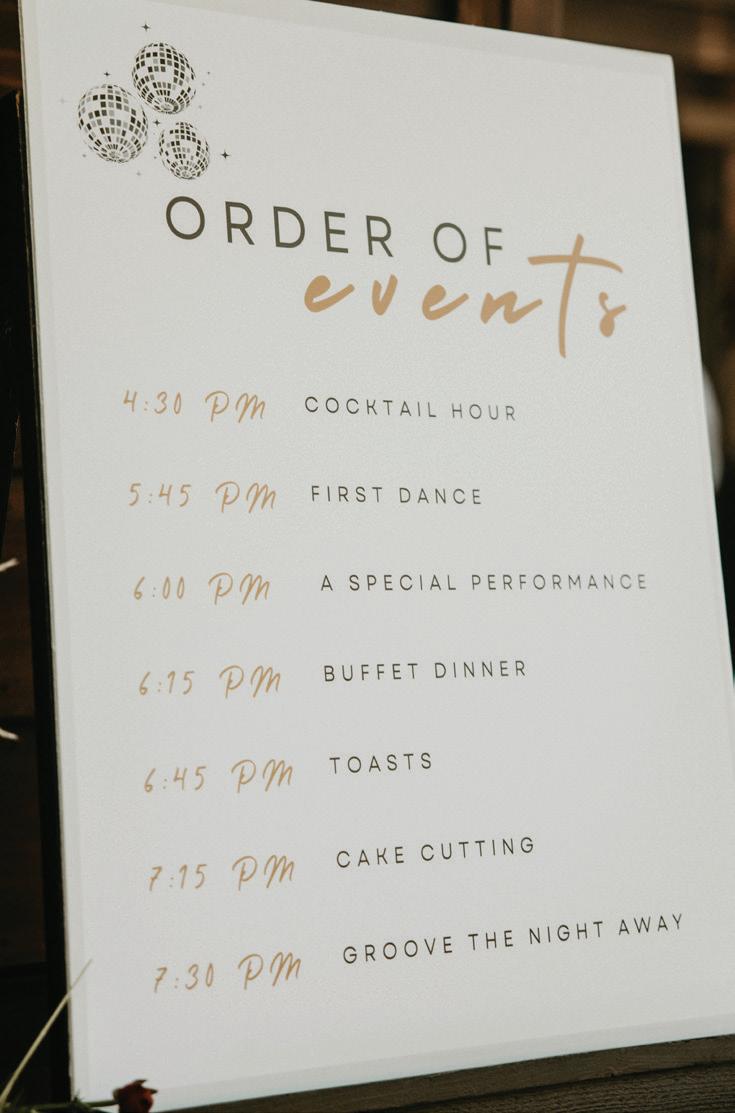 ORDER OF
events
4:30 PM COCKTAIL HOUR
5:45 PM FIRST DANCE
6:00 PM A SPECIAL PERFORMANCE
6:15 PM BUFFET DINNER
6:45 PM TOASTS
7:15 PM CAKE CUTTING
7:30 PM GROOVE THE NIGHT AWAY